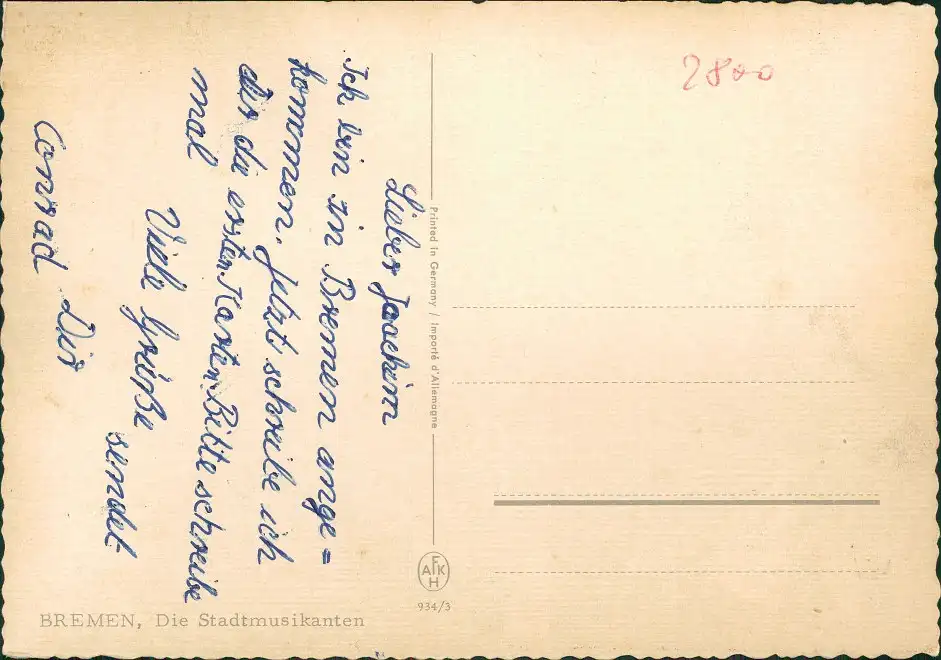 Lieber Joachim
Ich bin in Bremen ange=
kommen. Jetzt schreibe ich
dir die ersten Karten. Bitte schreibe
mal
Viele Grüße
sendet
Dir
Conrad
Printed in Germany / Importé d'Allemagne
AFKH
934/3
BREMEN, Die Stadtmusikanten
2800